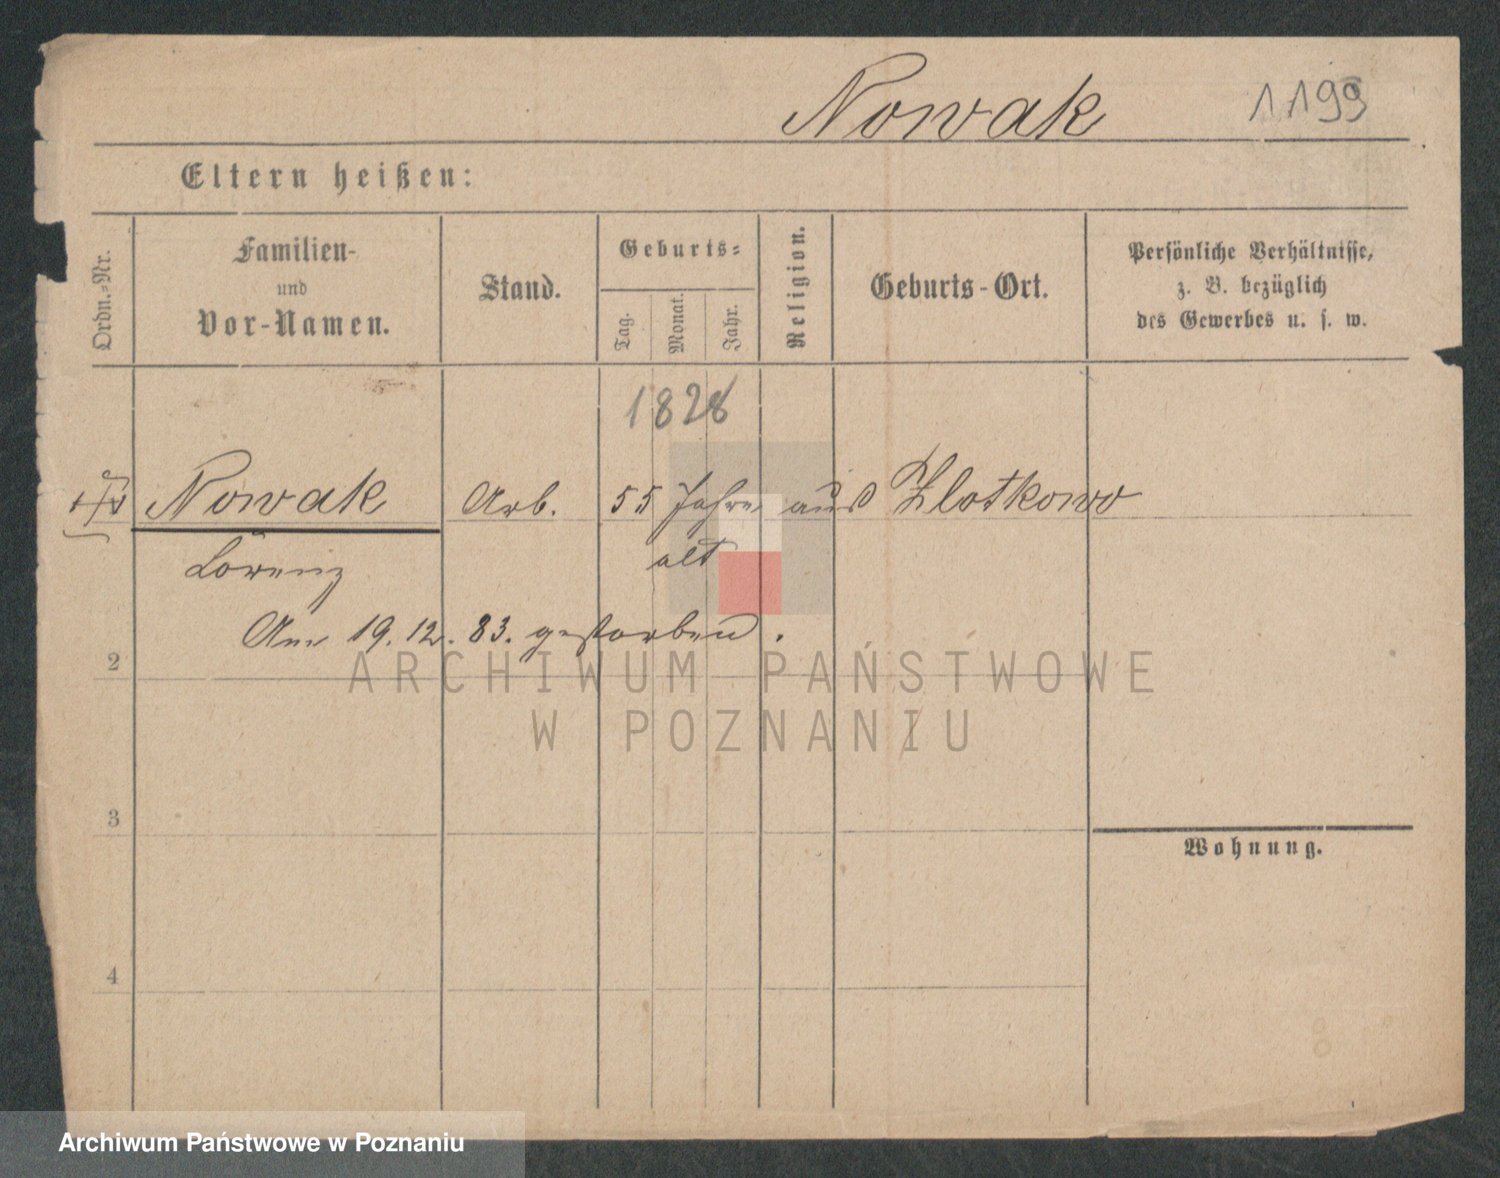 Nowak 1199
Eltern heißen:
Ordn.-Nr.
Familien-
und
Vor-Namen.
Stand.
Geburts-
Tag.
Monat.
Jahr.
Religion.
Geburts-Ort.
Persönliche Verhältnisse,
z. B. bezüglich
des Gewerbes u. s. w.
1828
Nowak Arb. 55 Jahre aus Zlotkowo
alt
Lorenz
Am 19.12.83. gestorben.
2
ARCHIWUM PAŃSTWOWE
W POZNANIU
3
Wohnung.
4
Archiwum Państwowe w Poznaniu